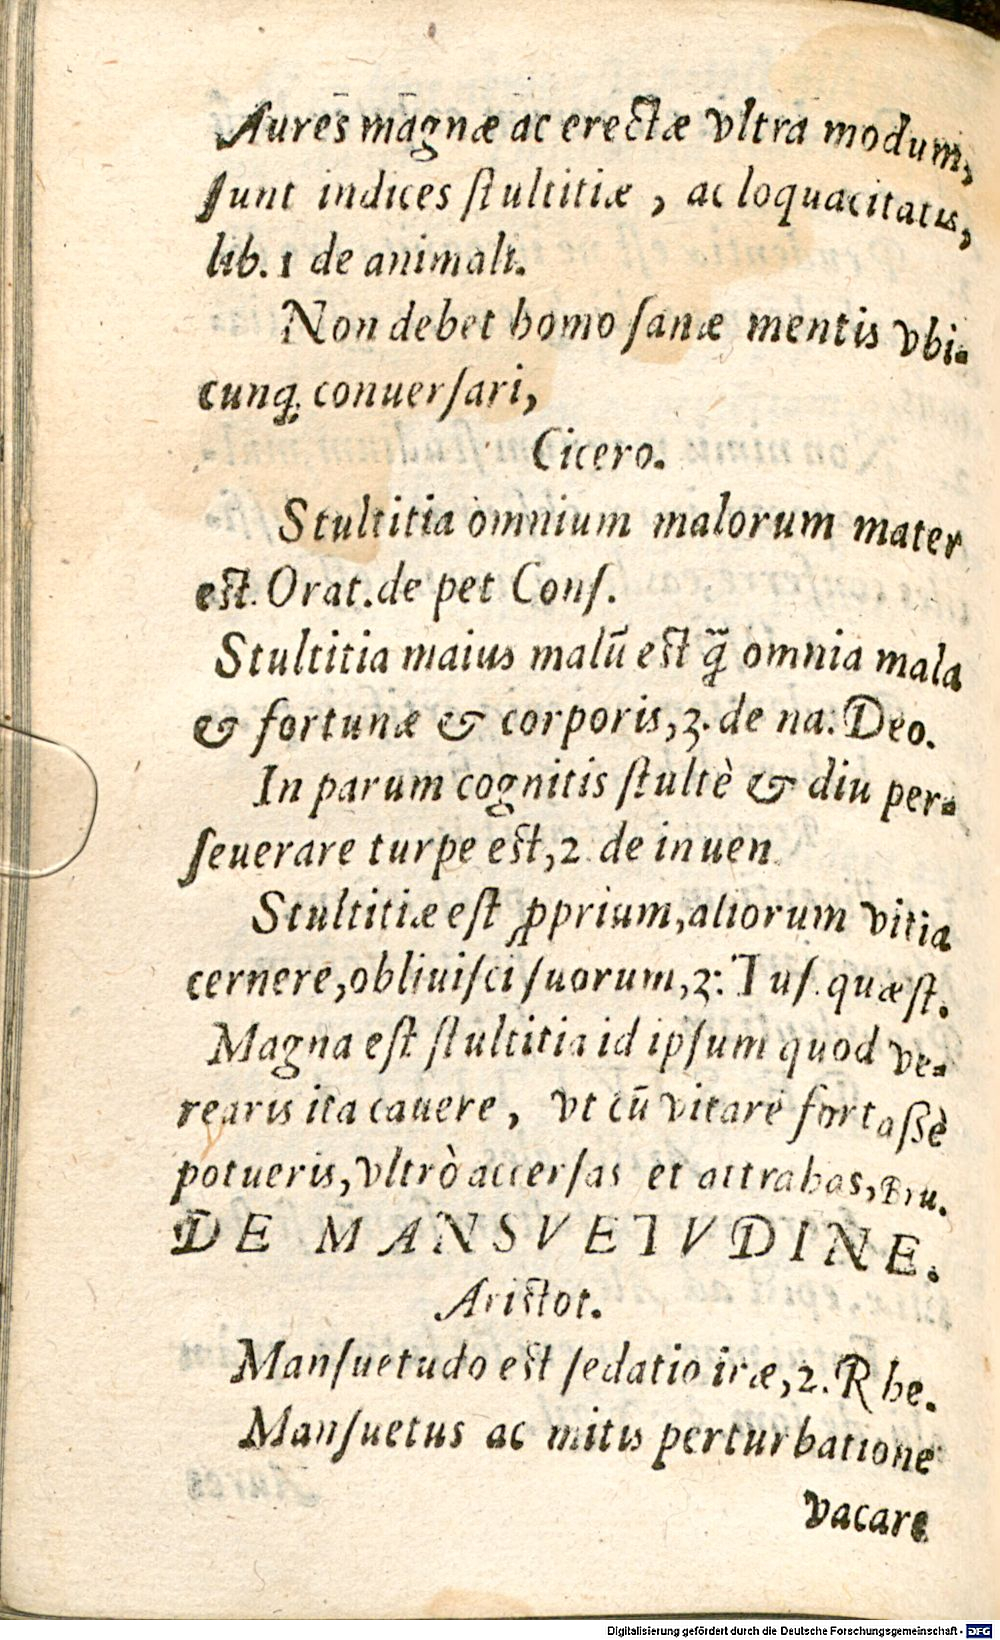 Aures magnæ ac erectæ vltra modum,
ſunt indices ſtultitiæ, ac loquacitatis,
lib. 1 de animali.
Non debet homo ſanæ mentis vbi-
cunq; conuerſari,
Cicero.
Stultitia omnium malorum mater
est. Orat. de pet Conſ.
Stultitia maius malū est q̃ omnia mala
& fortunæ & corporis, 3. de na. Deo.
In parum cognitis ſtultè & diu per-
ſeuerare turpe est, 2 de inuen
Stultitiæ eſt ꝓprium, aliorum vitia
cernere, obliuiſci ſuorum, 3: Tuſ. quæſt.
Magna eſt ſtultitia id ipſum quod ve-
rearis ita cauere, vt cū vitare fortaſſè
potueris, vltrò accerſas et attrahas, Bru.
DE MANSVETVDINE.
Aristot.
Manſuetudo est ſedatio iræ, 2. Rhe.
Manſuetus ac mitis perturbatione
vacare
Digitalisierung gefördert durch die Deutsche Forschungsgemeinschaft - DFG